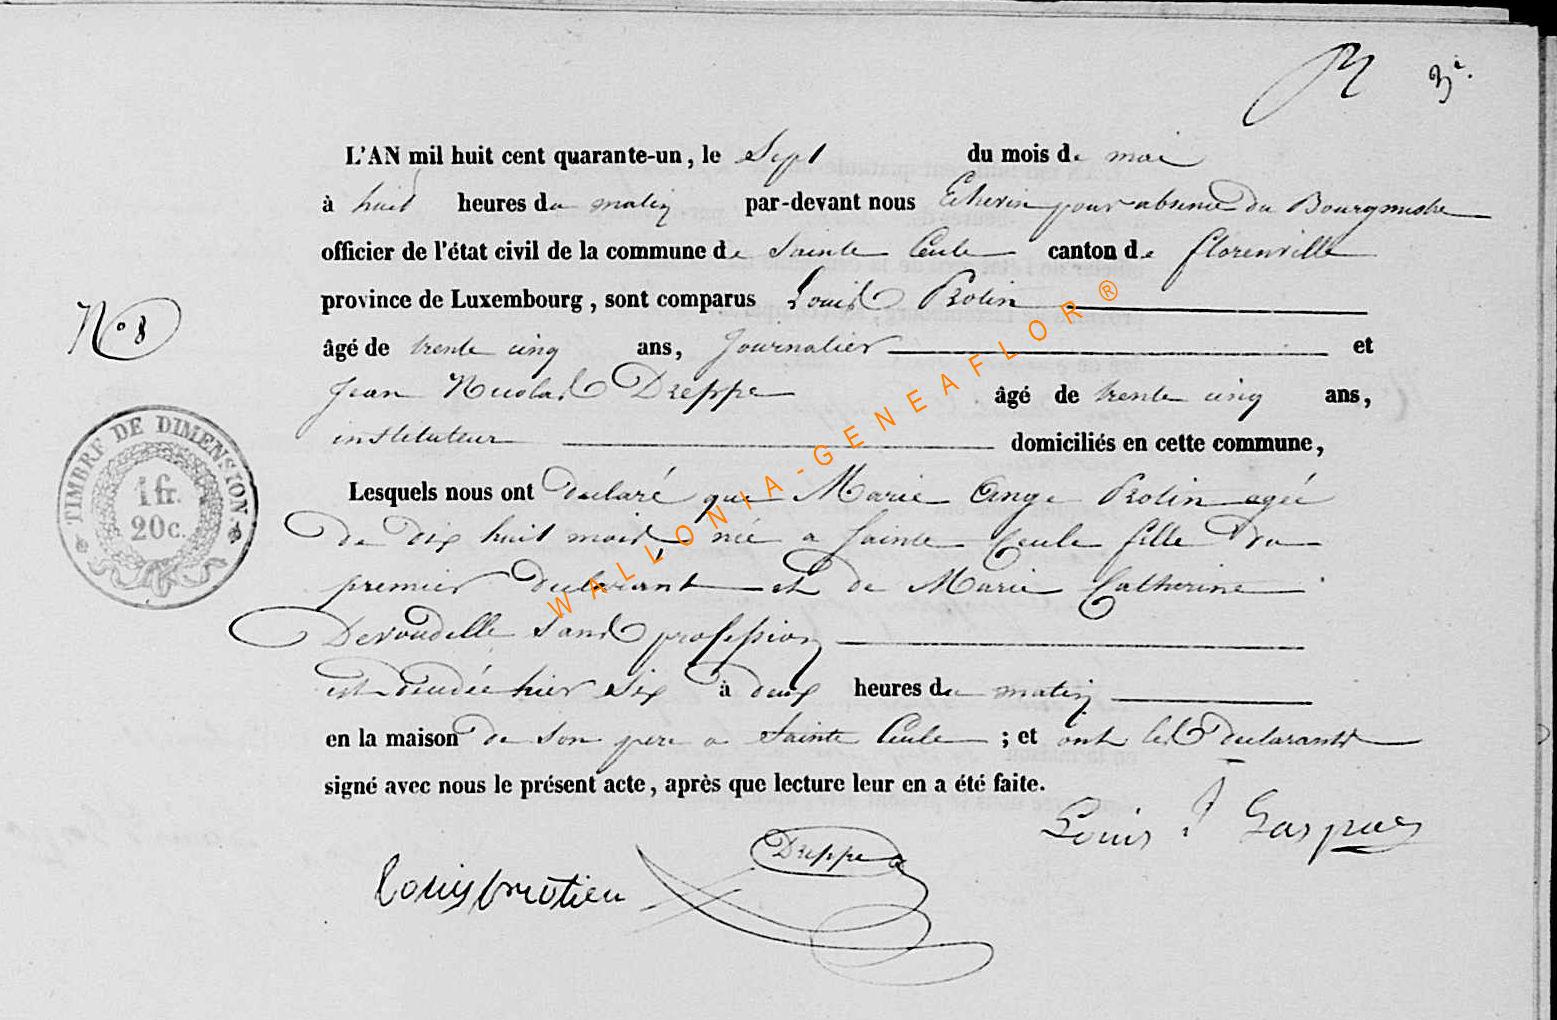 3e.
L'AN mil huit cent quarante-un, le Sept du mois de mai
à huit heures du matin par-devant nous Echevin pour absence du Bourgmestre
officier de l'état civil de la commune de Sainte Cecile canton de florenville
province de Luxembourg, sont comparus Louis Rotin
âgé de trente cinq ans, Journalier et
Jean Nicolas Dreppe âgé de trente cinq ans,
instituteur domiciliés en cette commune,
Lesquels nous ont declaré que Marie Ange Rotin agée
de dix huit mois, née a Sainte Cecile fille du
premier declarant et de Marie Catherine
sans profession
est décédée hier Six à deux heures du matin
en la maison de son pere a Sainte Cecile ; et ont les declarants
signé avec nous le présent acte, après que lecture leur en a été faite.
Louis J Gaspar
Dreppe
Louis
No 8
TIMBRE DE DIMENSION
1 fr.
20c.
WALLONIA-GENEAFLOR ®